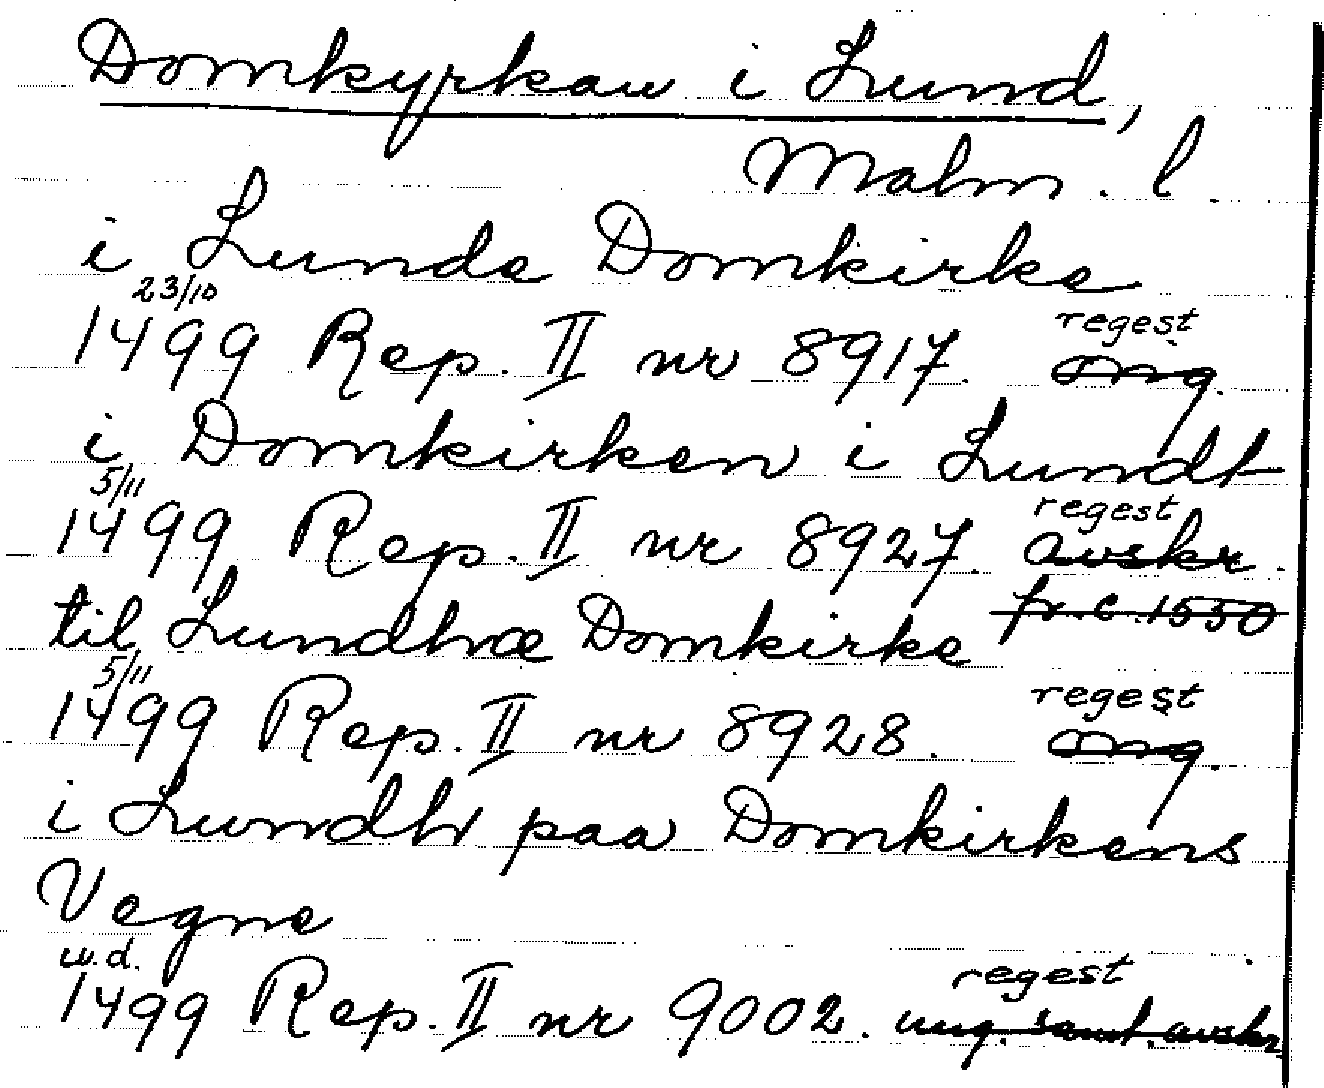 Domkyrkan i Lund,
Malm. l.
i Lunde Domkirke
23/10
1499 Rep. II nr 8917. regest
omg.
i Domkirken i Lundt
5/11
1499 Rep. II nr 8927. regest
avskr.
fr. c. 1550
til Lundhræ Domkirke
5/11
1499 Rep. II nr 8928. regest
omg.
i Lundh paa Domkirkens
Vegne
u.d.
1499 Rep. II nr 9002. regest
ung. samt. avskr